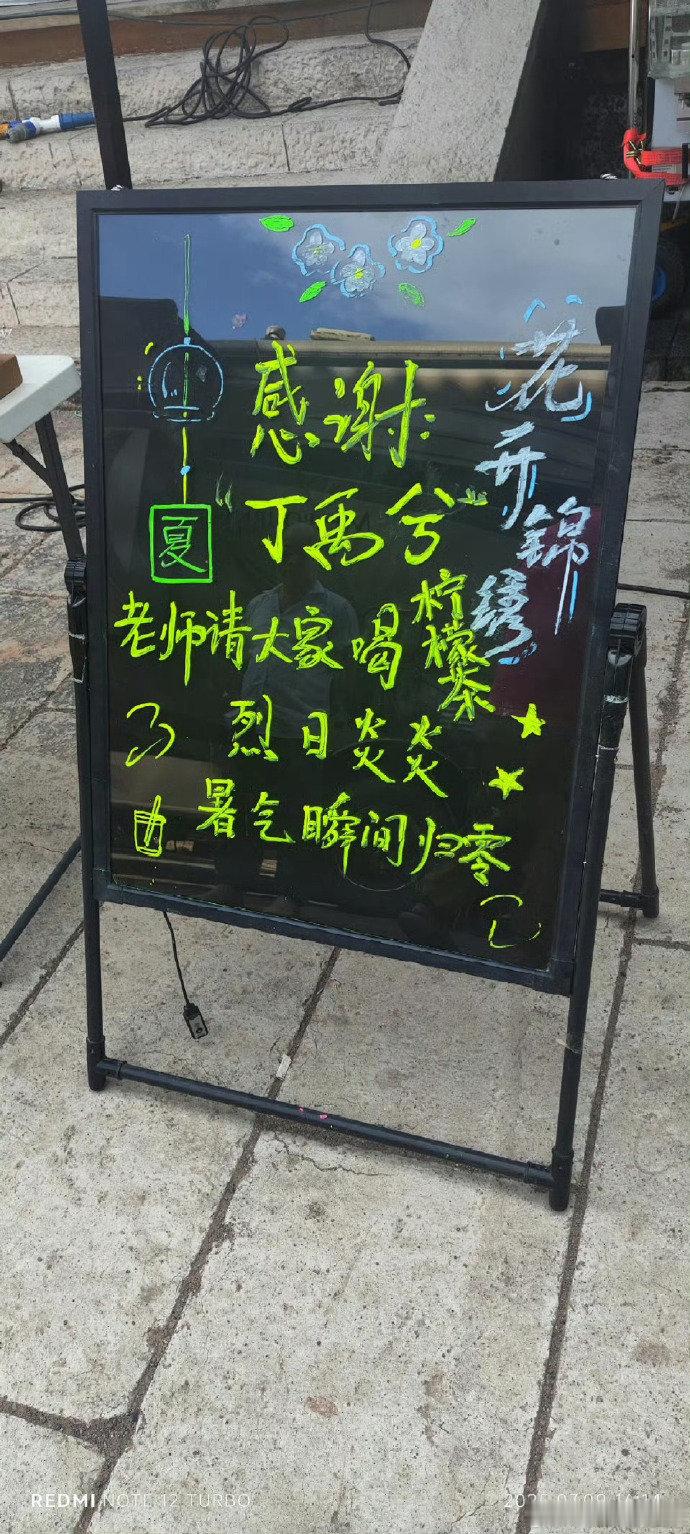 感谢:
"丁禹兮"
老师请大家喝柠檬茶
烈日炎炎
暑气瞬间归零
花开锦绣
夏
REDMI NOTE 12 TURBO